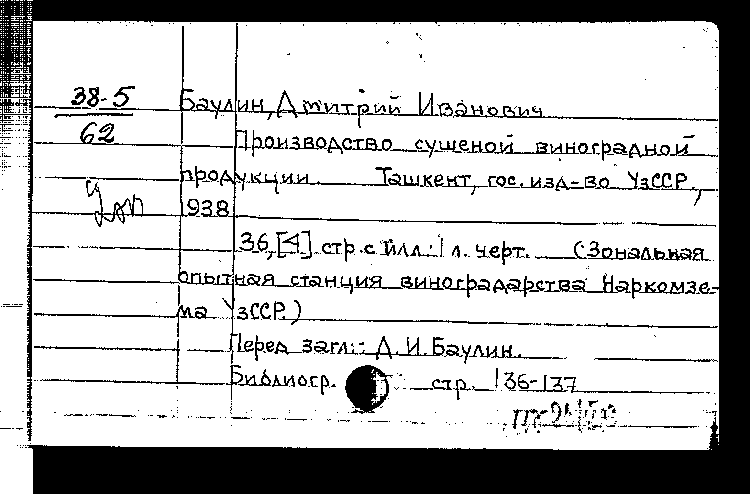 38-5
62
Баулин, Дмитрий Иванович
Производство сушеной виноградной
продукции. Ташкент, гос. изд-во УзССР.,
1938
36, [4] стр. с илл.: 1 л. черт. (Зональная
опытная станция виноградарства Наркомзе-
ма УзССР.)
Перед загл.:- Д. И. Баулин.
Библиогр. стр. 136-137